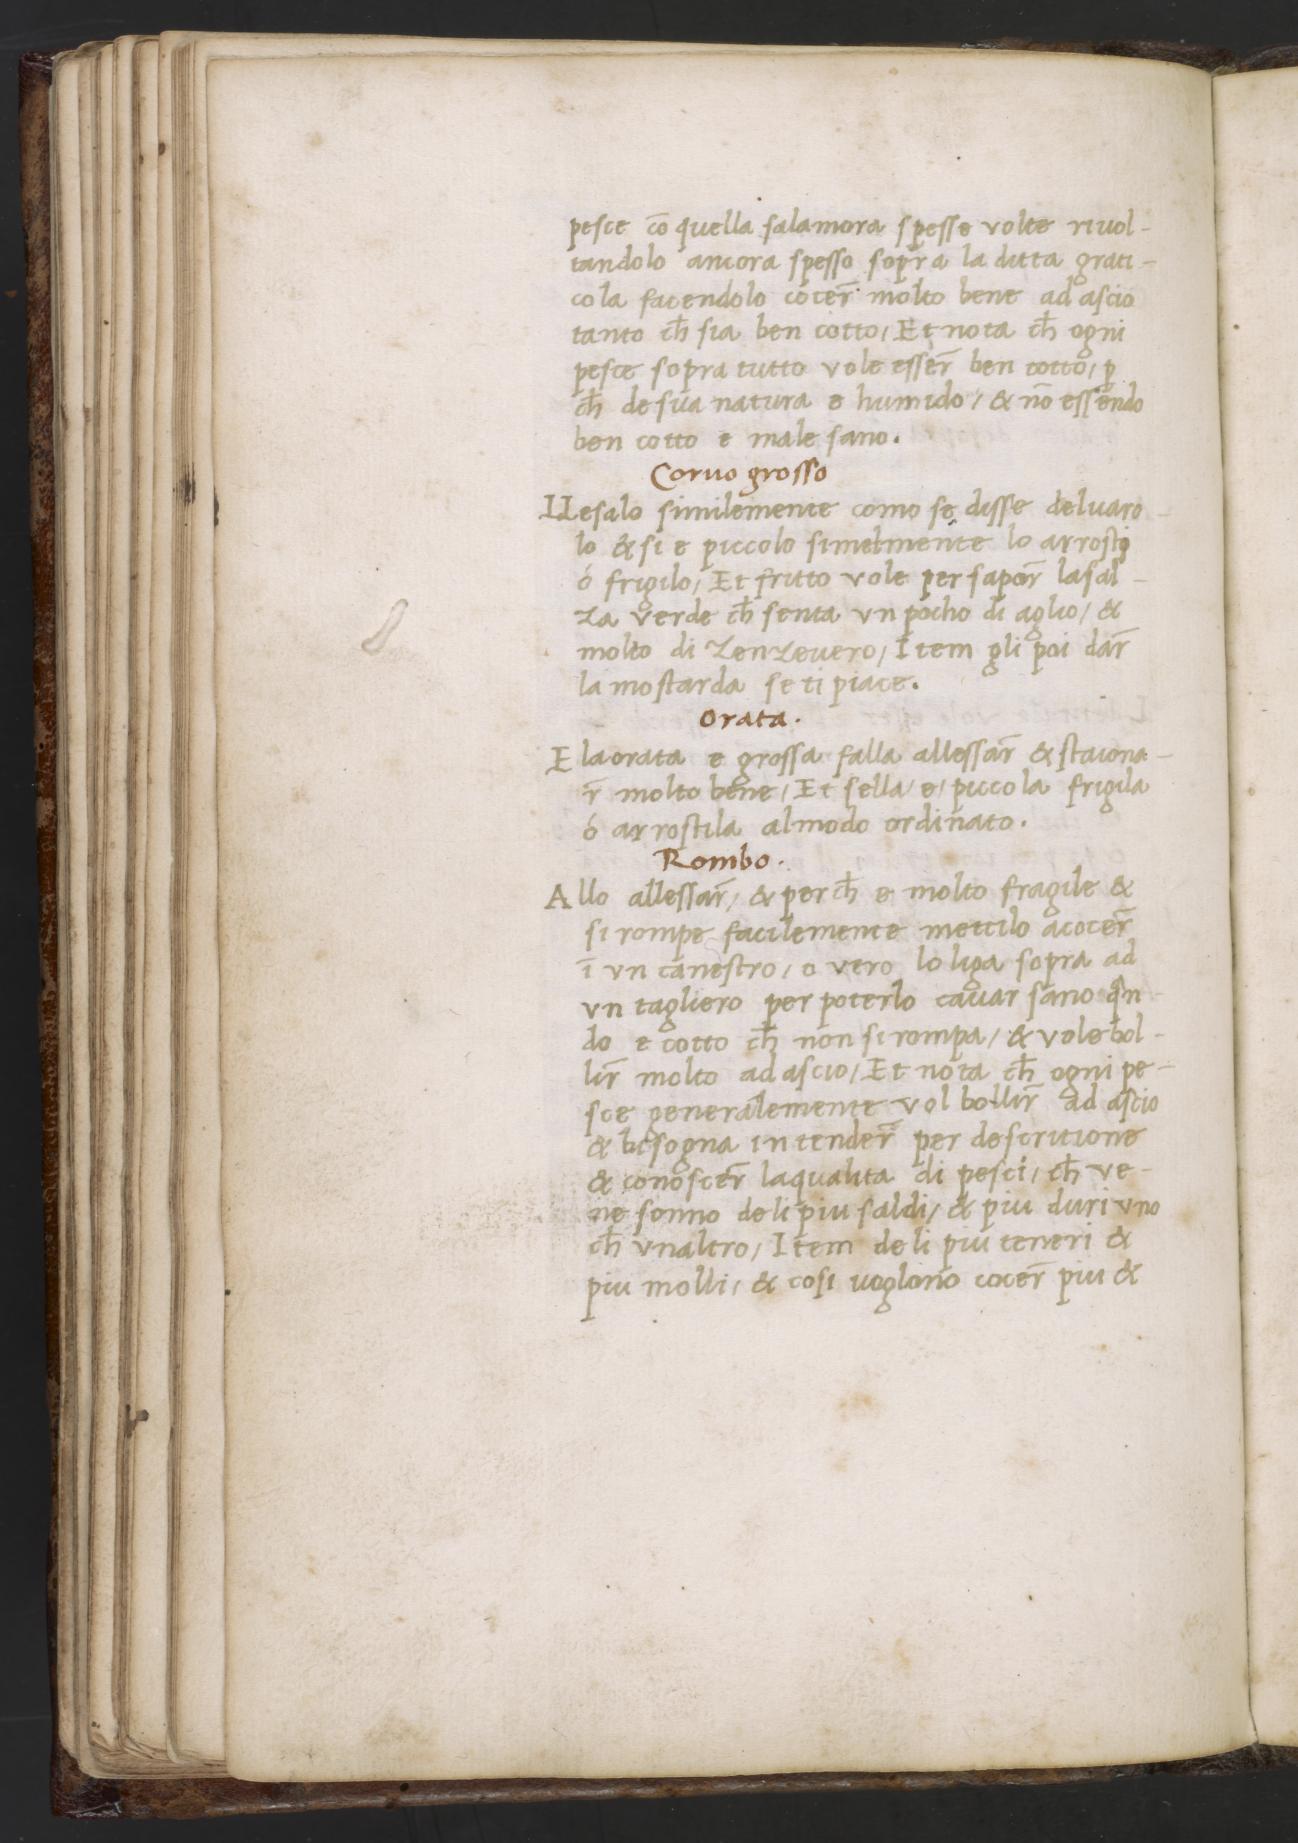 pesce cō quella salamora spesse volte riuol-
tandolo ancora spesso sopra la ditta grati-
cola facendolo cocer̄ molto bene ad ascio
tanto ch̄ sia ben cotto / Et nota ch̄ ogni
pesce sopra tutto vole esser̄ ben cotto / ꝑ
ch̄ de sua natura e humido / & nō essendo
ben cotto e male sano.
Coruo grosso
LLesalo similemente como se disse deluaro-
lo & si e piccolo simelmente lo arrosto
ó frigilo / Et fritto vole per sapor̄ lasal-
za verde ch̄ senta vn pocho di aglio / &
molto di zenzeuero / Item gli poi dar̄
la mostarda se ti piace.
Orata.
E laorata e grossa falla allessar̄ & staiona-
r̄ molto bene / Et sella / e / piccola frigila
ó arrostila almodo ordinato.
Rombo.
Allo allessar̄ / & perch̄ e molto fragile &
si rompe facilemente mettilo acocer̄
ī vn canestro / o vero lo liga sopra ad
vn tagliero per poterlo cauar sano qn̄-
do e cotto ch̄ non si rompa / & vole bol-
lir̄ molto ad ascio / Et nota ch̄ ogni pe-
sce generalemente vol bollir̄ ad ascio
& bisogna intender̄ per descritione
& conoscer̄ laqualita di pesci / ch̄ ve-
ne sonno de li piu saldi / & piu duri vno
ch̄ vnaltro / Item de li piu teneri &
piu molli / & cosi uoglono cocer̄ piu &